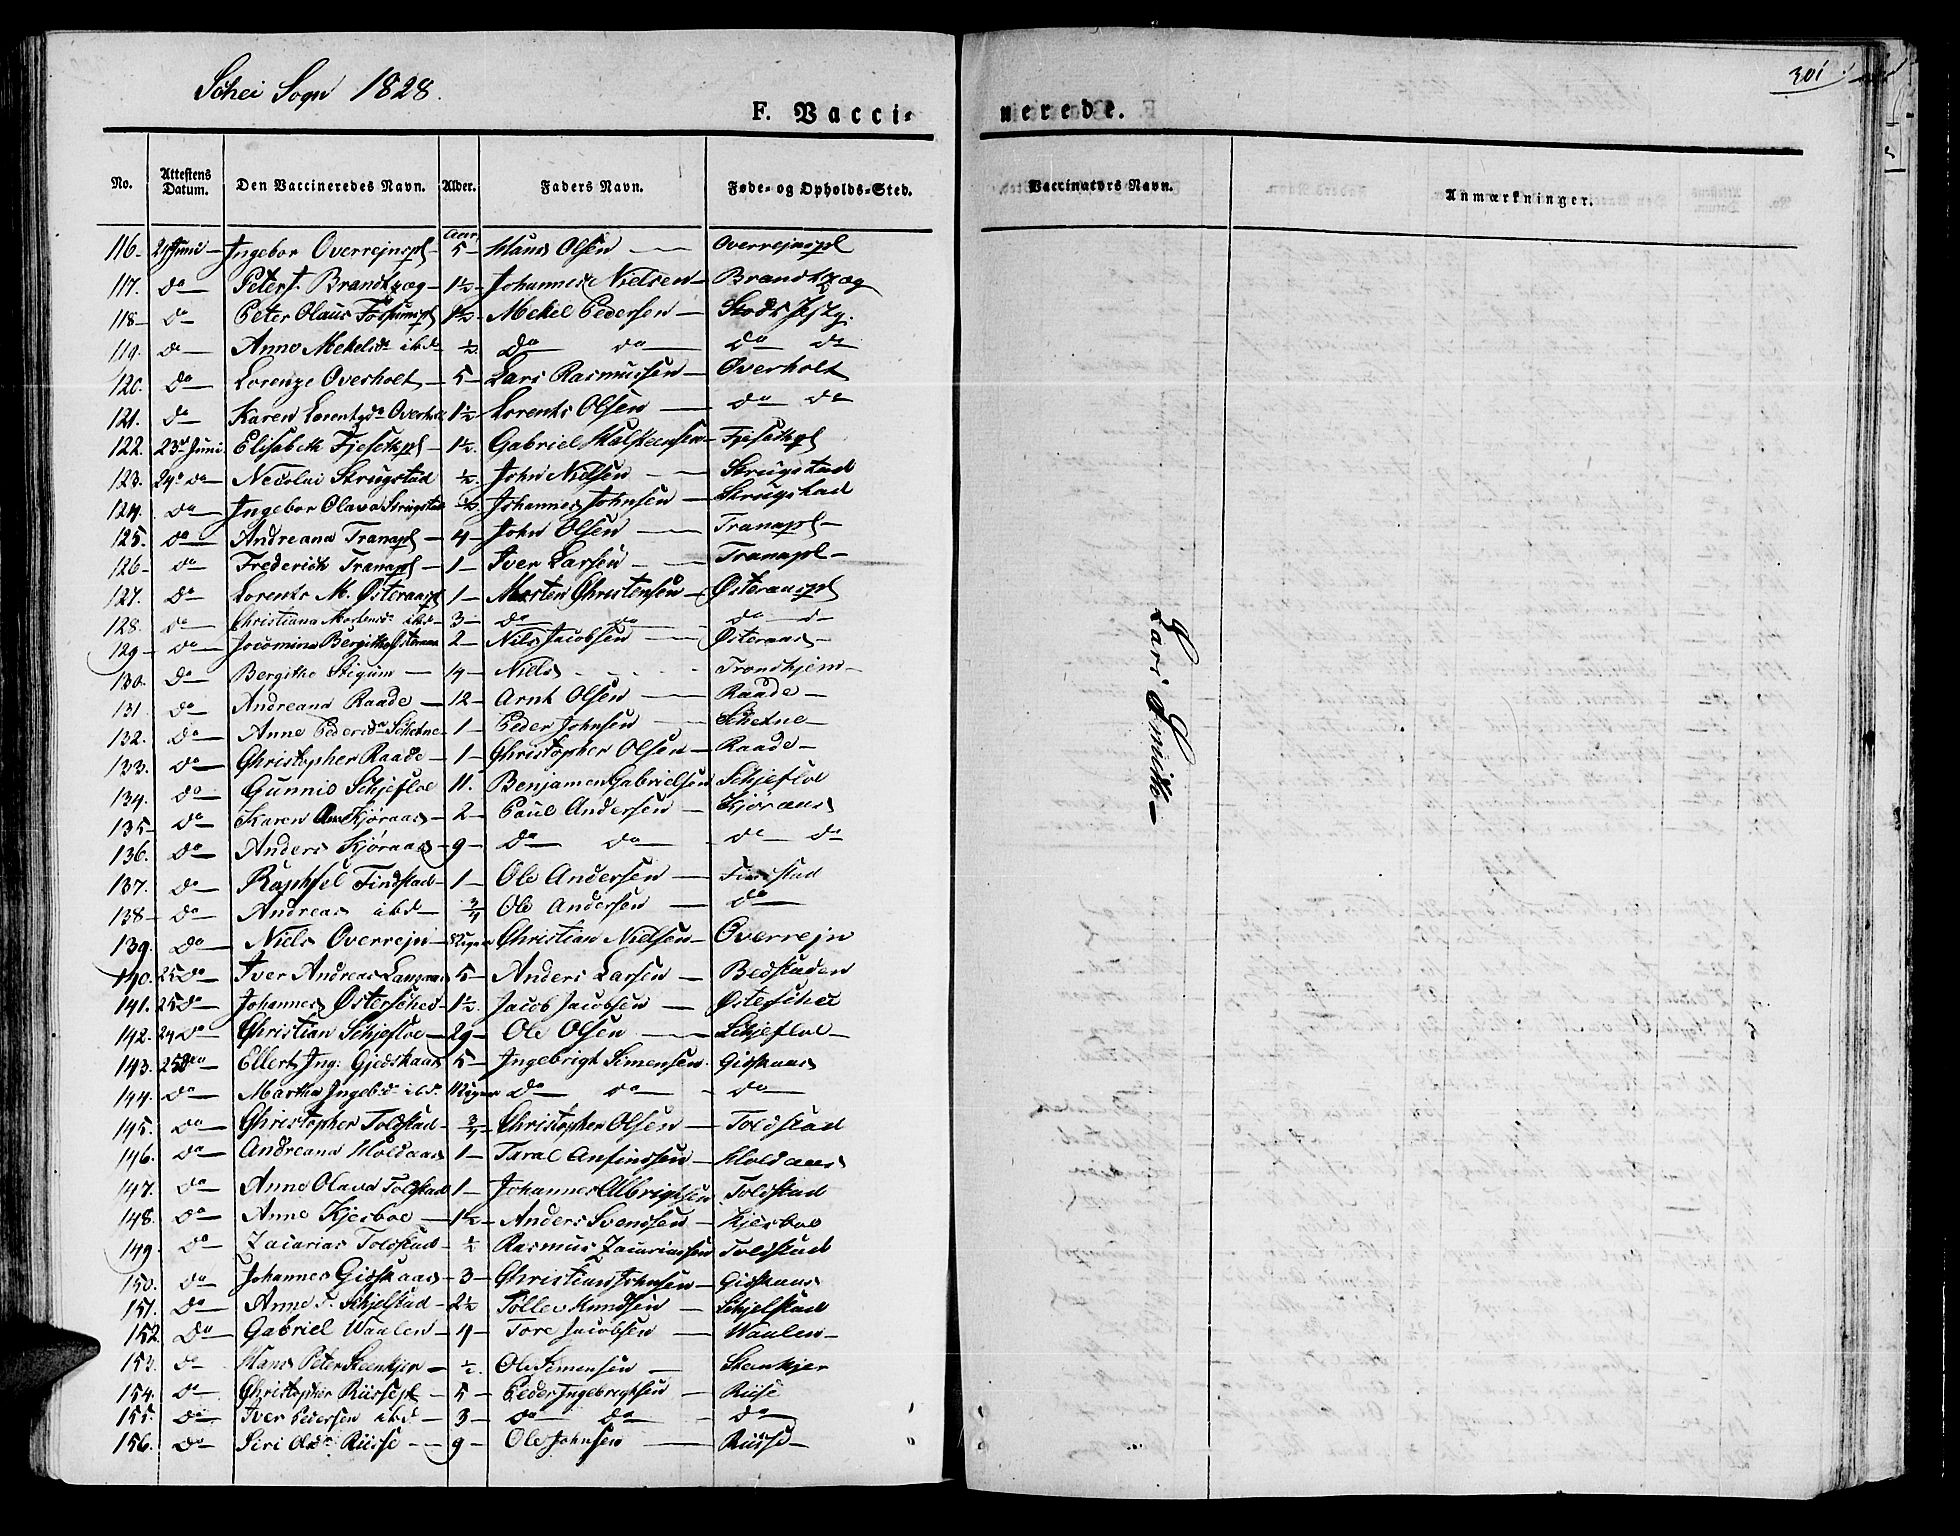 Schei Sogn 1828.
301
F. Vacci-
nerede.
No. Attestens Datum. Den Vaccineredes Navn. Alder. Faders Navn. Føde- og Opholds-Sted. Vaccinators Navn. Anmærkninger.
Aar
116- Juni - Ingebor Overrejnspl - 5 - Hans Olsen - Overrejnspl
117. do - Peter J. Brandtzæg - 1½ - Johannes Nielsen - Brandtzæg
118 - do - Peter Olaus 1½ - Mekel Pedersen -
119. do - Anne Mekelsdr ibd - ½ do do - do do
120. do - Lorenze Overholt - 5 - Lars Rasmussen - Overholt
121. do - Karen Lorentzdr 1½ Lorents Olsen - do do
122. 23de Juni Elisabeth Fjesethpl - 1½. Gabriel Halsteensen - Fjesethpl
123. 24de do - Nicolai Strugstad ½. John Nielsen - Strugstad
124. do - Ingebor Olava Strugstad ½ Johannes Johnsen - Strugstad
125. do - Andreana Tranapl - 4 - John Olsen - Tranapl -
126 - do - Frederich Tranapl - 1 - Iver Larsen - Tranapl -
127. do - Lorents M. Østeraaspl 1 - Morten Christensen - Østeraaspl
128. do - Christiana Mortensdr ibd - 3 - do do - do
129 - do - Jocomina Bergithe Østeraas 2 - Nils Jacobsen - Østeraas -
130. do - Bergithe Stigum - 14 - Niels - Trondhjem -
131. do - Andreana Raade - 12 - Arnt Olsen - Raade -
132. do - Anne Pedersdr 1 - Peder Johnsen -
133. do - Christopher Raade - 1 - Christopher Olsen - Raade -
134. do - Gunnio Schjefloe 11. Benjamen Gabrielsen Schjefloe
135 - do - Karen Kjøraas - 2 - Paul Andersen - Kjøraas
136. do - Anders Kjøraas - 9 - do do - do do
137. do - Findstad - 1 - Ole Andersen - Findstad
138 - do - Andreas ibd - ¾ Ole Andersen - do
139. do - Niels Overrejn - Christian Nielsen - Overrejn
140. 25 do - Iver Andreas 5 - Anders Larsen - Bedstaden
141. 25 do - Johannes Østerschei - 1½. Jacob Jacobsen - Østerschei
142. 24 do - Christian Schjefloe - 29 - Ole Olsen - Schjefloe -
143. 25 do - Ellert Ing: 5 - Ingebrigt Simensen. Gidskaas
144. do - Martha Ingebdr ibd. do do - do
145. do - Christopher Toldstad - ¾ - Christopher Olsen - Toldstad
146. do - Andreana Holdaas 1 - Taral Anfindsen - Holdaas
147. do - Anne Olava Toldstad 1 - Johannes Albrigtsen Toldstad
148. do - Anne Kjesboe - 1½ - Anders Svendsen - Kjesboe
149. do - Zacarias Toldstad - ½ - Rasmus Zacariassen Toldstad
150. do - Johannes Gidskaas - 3 - Christian Johnsen - Gidskaas
151. do - Anne T. Schjelstad - 2½ Tollev Knudsen - Schjelstad
152. do - Gabriel Waalen - 4 - Tore Jacobsen - Waalen -
153. do - Hans Peter Steenkjer - ½. Ole Simensen - Steenkjer
154. do - Christopher Riissepl - 5 - Peder Ingebrigtsen - Riise
155. do - Iver Pedersen ibd - 3 - do do - do
156. do - Siri Olsdr Riisse - 9 - Ole Johnsen - Riisse -
Lars Smith -